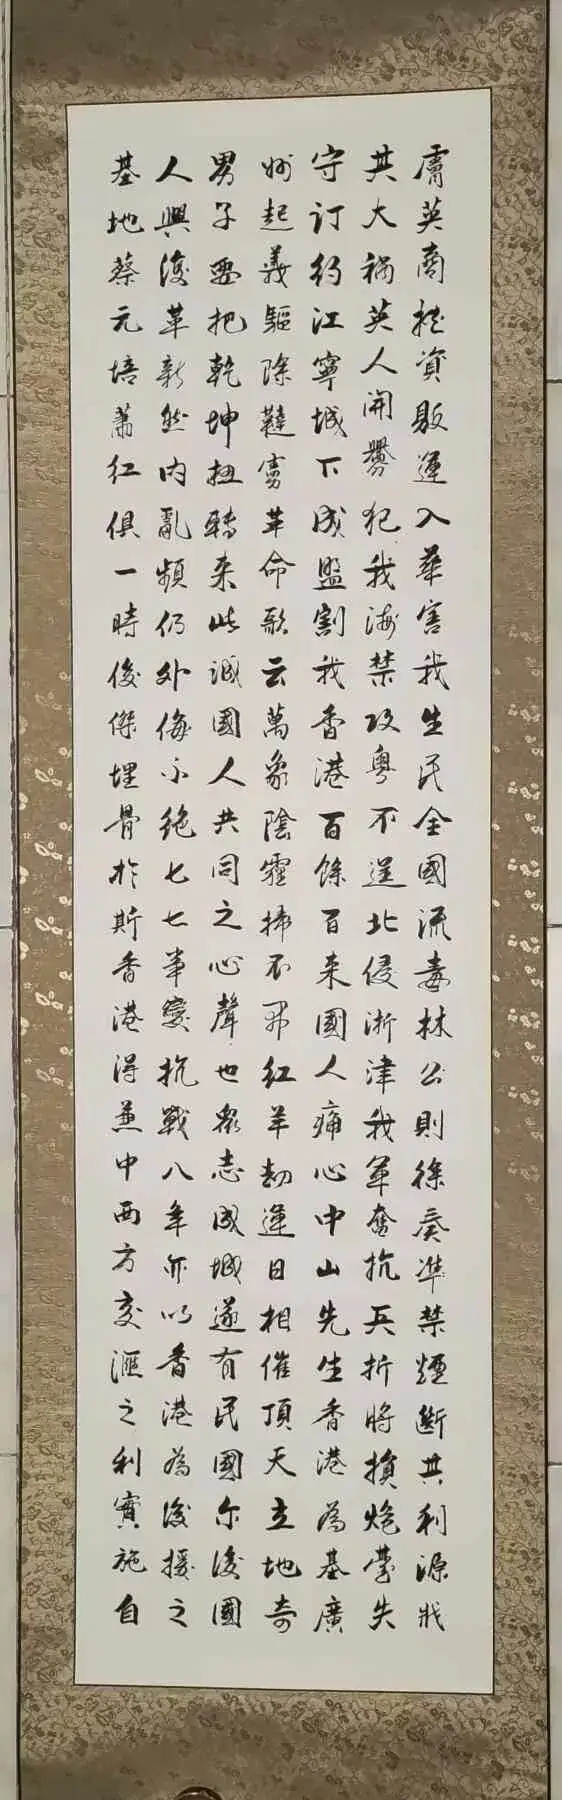 膚英商挺資販運入華害我生民全國流毒林公則徐奏准禁煙斷其利源戕
其大禍英人開釁犯我海禁攻粵不逞北侵浙津我軍奮抗兵折將損炮臺失
守訂約江寧城下成盟割我香港百餘百来國人痛心中山先生香港為基廣
州起義驅除韃虜革命歌云萬象陰霾掃不開紅羊劫運日相催頂天立地奇
男子要把乾坤扭轉来此誠國人共同之心聲也眾志成城遂有民國尔後國
人興復革新然內亂頻仍外侮不絕七七事變抗戰八年亦以香港為後援之
基地蔡元培蕭紅俱一時俊傑埋骨於斯香港得兼中西方交滙之利實施自